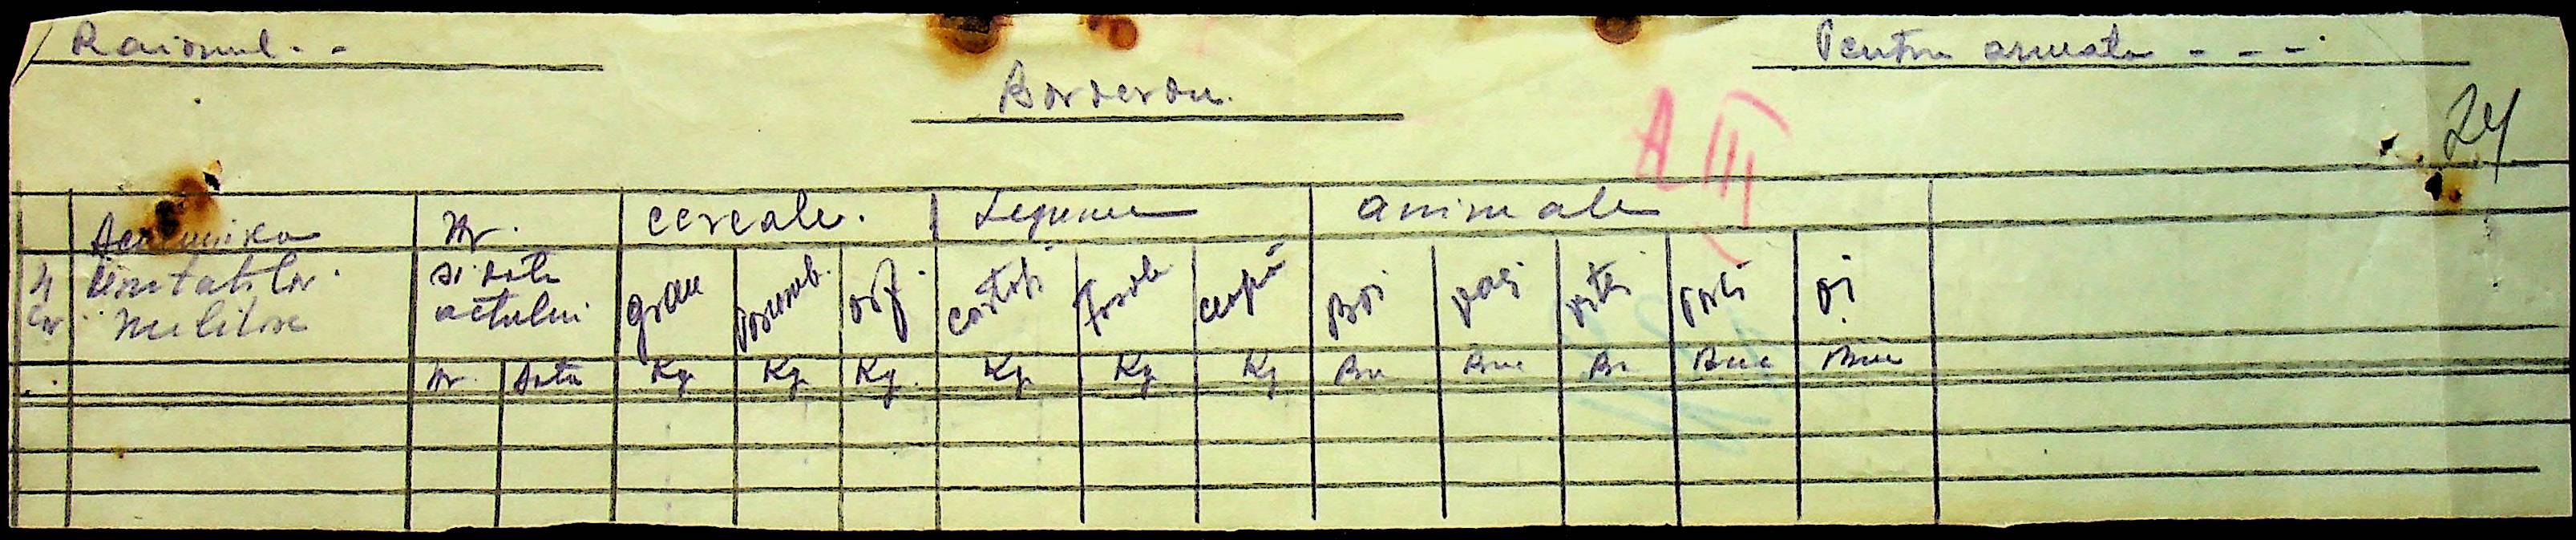 Raionul. -
Pentru armata - - -
Borderou.
A III
24
N cr.
Denumirea Unitatilor Militare
Nr. si data actului
cereale.
Legume
animale
grau
porumb.
orz.
cartofi
fasole
ceapă
Boi
vaci
vitei
porci
oi
Nr. Data Kg Kg Kg. Kg Kg Kg Bu Buc Bu Buc Buc